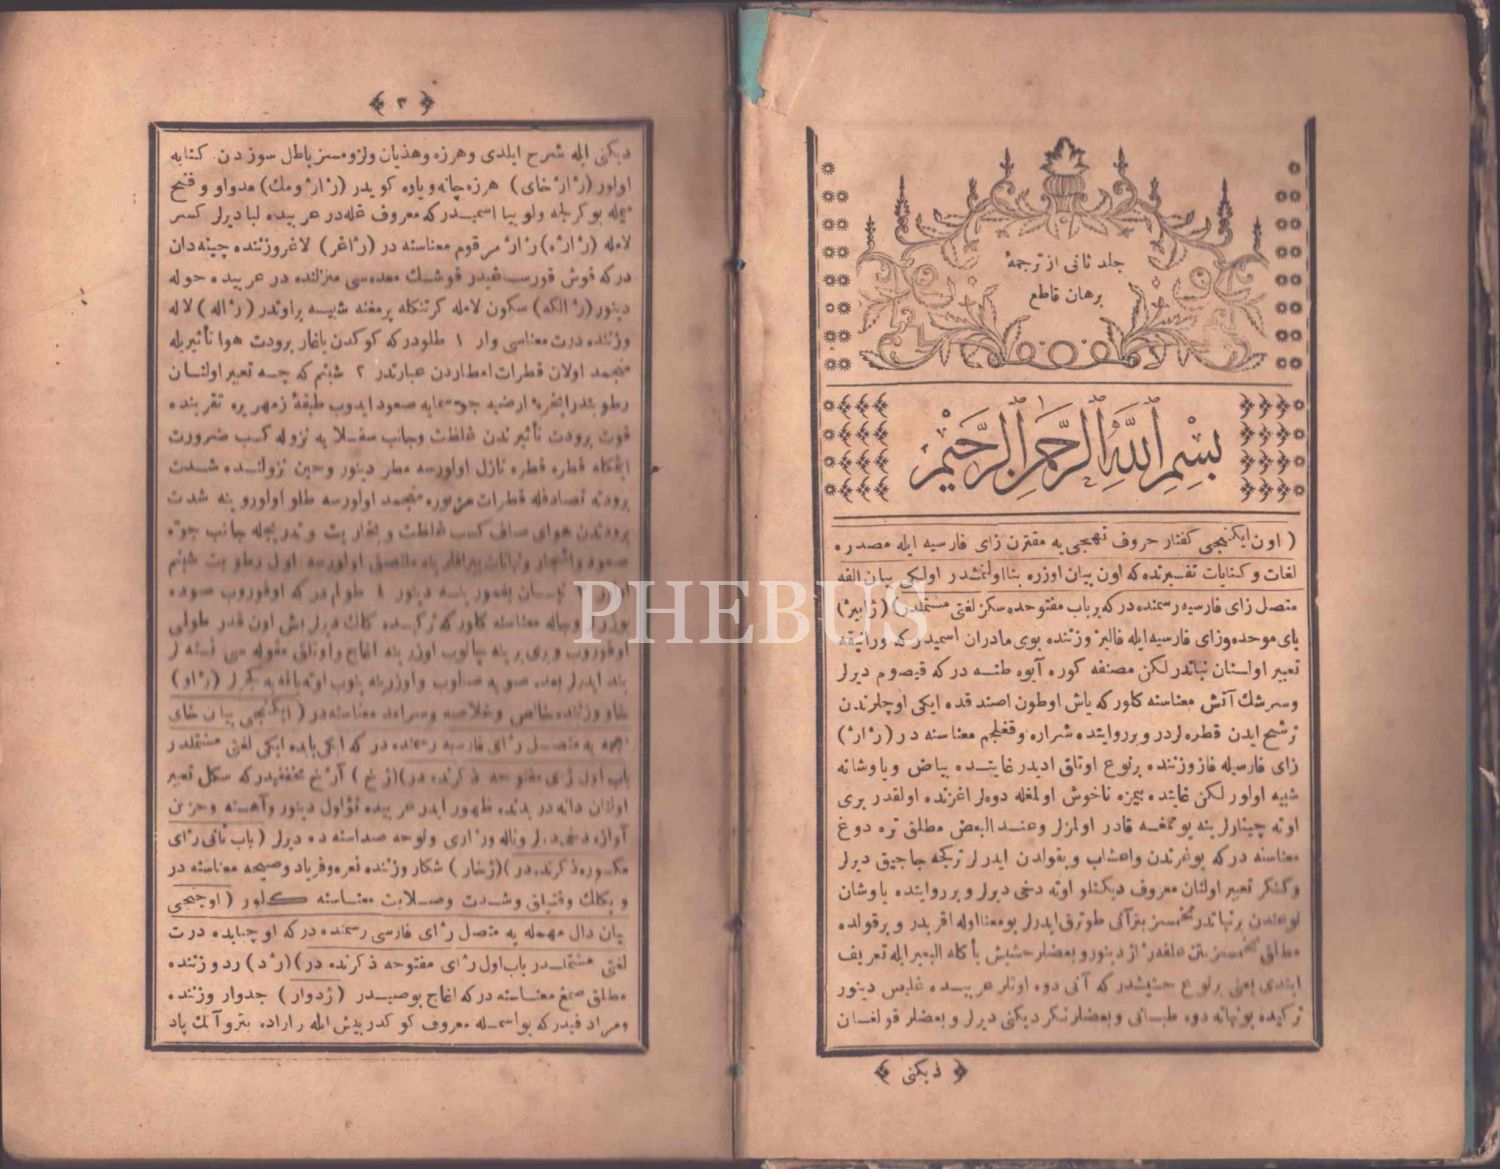 جلد ثانی از ترجمۀ
برهان قاطع
بسم الله الرحمن الرحیم
( اون ایکنجی گفتار حروف تهجی یه مقترن زای فارسیه ایله مصدره
لغات و کنایات تفسیرنده که اون بیان اوزره بنا اولنمشدر اولکی بیان الفه
متصل زای فارسیه رسمنده در که بر باب مفتوحده سکز لغتی مشتملدر ) ( ژابیژ )
بای موحده و زای فارسیه ایله فالیز وزننده بوی مادران اسمیدر که ورانیقه
تعبیر اولنان نباتدر لکن مصنفه کوره آبوه طنه در که قیصوم دیرلر
و سرشك آتش معناسنه کلور که یاش اوطون اصند قده ایکی اوچلرندن
ترشح ایدن قطره لردر و بر روایتده شراره و قغیلجم معناسنه در ( ژاژ )
زای فارسیله فاز وزننده بر نوع اوتلق ادیدر غایتده بیاض و یاوشانه
شبیه اولور لکن غایتده بیمزه ناخوش اولمغله دوه لر اغزنده اولقدر بری
اوته چینارلر ینه یوتمغه قادر اولمزلر و عند البعض مطلق تره دوغ
معناسنه در که یوغرتدن و اعشاب و بقولدن ایدرلر ترکجه جاجیق دیرلر
و کنکر تعبیر اولنان معروف دیکنلو اوته دخی دیرلر و بر روایتده یاوشان
نوعندن بر نباتدر تخمسز بتر آنی طوترق ایدرلر بو معنا اوله اقربدر و بر قولده
مطلق تخمسز بتن علفه ژاژ دینور و بعضلر حشیش یأکله البعیر ایله تعریف
ایتدی یعنی بر نوع حشیشدر که آنی دوه اوتلر عربیده غلیس دینور
ترکیده بوتهانه دوه طبانی و بعضلر تکر دیکنی دیرلر و بعضلر قولغان
دیکنی
PHEBUS
٣
دیکنی ایله شرح ایلدی و هرزه و هذیان و لزومسز باطل سوزدن کنایه
اولور ( ژاژخای ) هرزه چانه و یاوه کویدر ( ژاژومك ) مد واو و فتح
میمله بوکرلجه و لوبیا اسمیدر که معروف غله در عربیده لبا دیرلر کسر
لامله ( ژاژه ) ژاژ مرقوم معناسنه در ( ژاغر ) لاغر وزننده چینه دان
در که قوش قورسغیدر قوشك معده سی منزلنده در عربیده حوله
دینور ( ژالکه ) سکون لامله کرتنکله یرمغنه شبیه بر اوتدر ( ژاله ) لاله
وزننده درت معناسی وار ١ طلودر که کوکدن یاغار برودت هوا تأثیریله
منجمد اولان قطرات امطاردن عبارتدر ٢ شبنم که چه تعبیر اولنان
رطوبتدر ابخرۀ ارضیه جو سمایه صعود ایدوب طبقۀ زمهریره تقربنده
قوت برودت تأثیرندن غلظت و جانب سفلا یه نزوله کسب ضرورت
ایتمکله قطره قطره نازل اولورسه مطر دینور و حین نزولنده شدت
برودته تصادفله قطرات مزبوره منجمد اولورسه طلو اولور و ینه شدت
برودتدن هوای صاف کسب غلظت و بخاریت و تدریجله جانب جوه
صعود و اشجار و نباتات یپراقلرینه ملتصق اولورسه اول رطوبت شبنم
خاو وزننده خالص و خلاصه و سرامد معناسنه در ( ایکنجی بیان خای
معجمه یه متصل ژای فارسیه رسمنده در که ایکی بابده ایکی لغتی مشتملدر
باب اول ژای مفتوحه ذکرنده در ) ( ژخ ) آژخ مخففیدر که سکل تعبیر
اولنان دانه در بدنده ظهور ایدر عربیده ثؤلول دینور و آهسته و حزین
آوازه دخی دیرلر و ناله و زاری و نوحه صداسنه ده دیرلر ( باب ثانی ژای
مکسوره ذکرنده در ) ( ژخار ) شکار وزننده نعره و فریاد و صیحه معناسنه در
و پکلك و قتیلق و شدت و صلابت معناسنه کلور ( اوچنجی
بیان دال مهمله یه متصل ژای فارسی رسمنده در که او چبابده درت
لغتی مشتملدر باب اول ژای مفتوحه ذکرنده در ) ( ژد ) رد وزننده
مطلق صمغ معناسنه در که اغاج بوصیدر ( ژدوار ) جدوار وزننده
و مرادفیدر که بو اسمله معروف کوکدر بیش ایله راراده بتر و آنك پاد